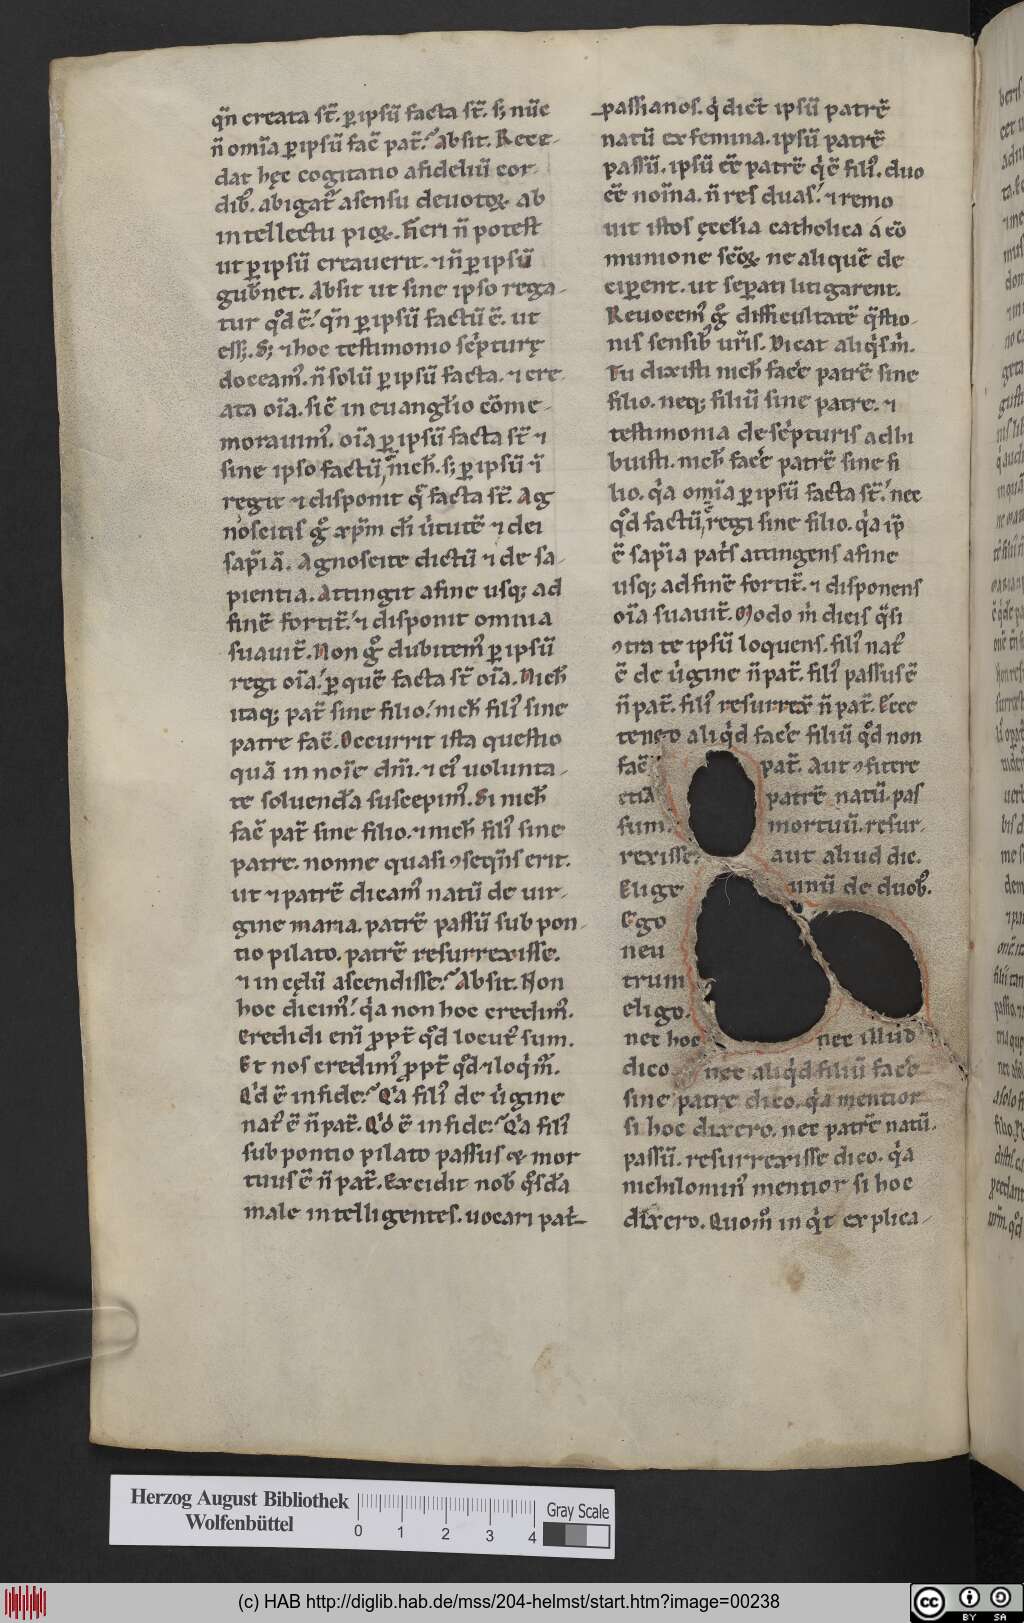 qn̄ creata st̄. ꝑ ipsū facta st̄. sꝫ nūc
n̄ om̄ia ꝑ ipsū fac̄ pat̄. absit. Rece-
dat hęc cogitatio a fideliū cor-
dibꝰ. abigat᷑ a sensu deuotoꝝ ab
intellectu pioꝝ. Fieri n̄ potest
ut ꝑ ipsū creauerit. ⁊ n̄ ꝑ ipsū
gub̄net. Absit ut sine ipso rega-
tur qᵒd ē. qn̄ ꝑ ipsū factū ē. ut
essꝫ. Sꝫ ⁊ hoc testimonio sc̄pturę
doceamꝰ. n̄ solū ꝑ ipsū facta. ⁊ cre-
ata oīa. sic̄ in euangłio cōme-
morauimꝰ. oīa ꝑ ipsū facta st̄ ⁊
sine ipso factū ē nich̄. sꝫ ꝑ ipsū ⁊
regit ⁊ disponit q̄ facta st̄. Ag
noscitis gͦ xp̄m di̅ uͥtutē ⁊ dei
sapiā. Agnoscite dictū ⁊ de sa-
pientia. Attingit a fine usqꝫ ad
finē fortit̄. ⁊ disponit omnia
suauit̄. Non gͦ dubitemꝰ ꝑ ipsū
regi oīa. ꝑ quē facta st̄ oīa. Nich̄
itaqꝫ pat̄ sine filio. nich̄ filiꝰ sine
patre fac̄. Occurrit ista questio
quā in noīe dn̄i. ⁊ eiꝰ uolunta-
te soluendā suscepimꝰ. Si nich̄
fac̄ pat̄ sine filio. ⁊ nich̄ filiꝰ sine
patre. nonne quasi ꝯseqn̄s erit.
ut ⁊ patrē dicamꝰ natū de uir-
gine maria. patrē passū sub pon
tio pilato. patrē resurrexisse.
⁊ in cęlū ascendisse. Absit. Non
hoc dicimꝰ. qͥa non hoc credimꝰ.
Credidi enī ꝓpt̄ qᵒd locutꝰ sum.
Et nos credimꝰ ꝓpt̄ qᵒd ⁊ loqͥmꝰ.
Qͥd ē in fide. Qͥa filiꝰ de uͥgine
natꝰ ē n̄ pat̄. Qͥd ē in fide. Qͥa filiꝰ
sub pontio pilato passus ⁊ mor
tuus ē n̄ pat̄. Excidit nob̄ qᵒsdā
male intelligentes. uocari pat̄-
passianos. qͥ dic̄t ipsū patrē
natū ex femina. ipsū patrē
passū. ipsū ēē patrē qͥ ē filiꝰ. duo
ēē noīna. n̄ res duas. ⁊ remo
uit istos ęcclia catholica a cō
munione sc̄oꝝ ne aliquē de
ciꝑent. ut seꝑati litigarent.
Reuocemꝰ gͦ difficultatē q̄stio-
nis sensibꝰ ur̄is. Dicat aliqͥs m̄.
Tu dixisti nich̄ fac̄e patrē sine
filio. neqꝫ filiū sine patre. ⁊
testimonia de sc̄pturis adhi
buisti. nich̄ fac̄e patrē sine fi
lio. qͥa om̄ia ꝑ ipsū facta st̄. nec
qᵒd factū ē regi sine filio. qͥa ip̄
ē sapiā pat̄s attingens a fine
usqꝫ ad finē fortit̄. ⁊ disponens
oīa suauit̄. Modo m̄ dicis q̄si
ꝯtra te ipsū loquens. filiꝰ natꝰ
ē de uͥgine n̄ pat̄. filiꝰ passus ē
n̄ pat̄. filiꝰ resurrex̄ n̄ pat̄. Ecce
teneo aliqͥd fac̄e filiū qᵒd non
fac̄ pat̄. Aut ꝯfitere
etiā patrē natū. pas
sum. mortuū. resur-
rexisse. aut aliud dic.
Elige unū de duobꝰ.
Ego
neu
trum
eligo.
nec hoc nec illud
dico nec aliqͥd filiū fac̄e
sine patre dico. qͥa mentior
si hoc dixero. nec patrē natū.
passū. resurrexisse dico. qͥa
nichilominꝰ mentior si hoc
dixero. Quomͦ inqͥt explica-
Herzog August Bibliothek
Wolfenbüttel
0 1 2 3 4
Gray Scale
(c) HAB http://diglib.hab.de/mss/204-helmst/start.htm?image=00238
cc BY SA